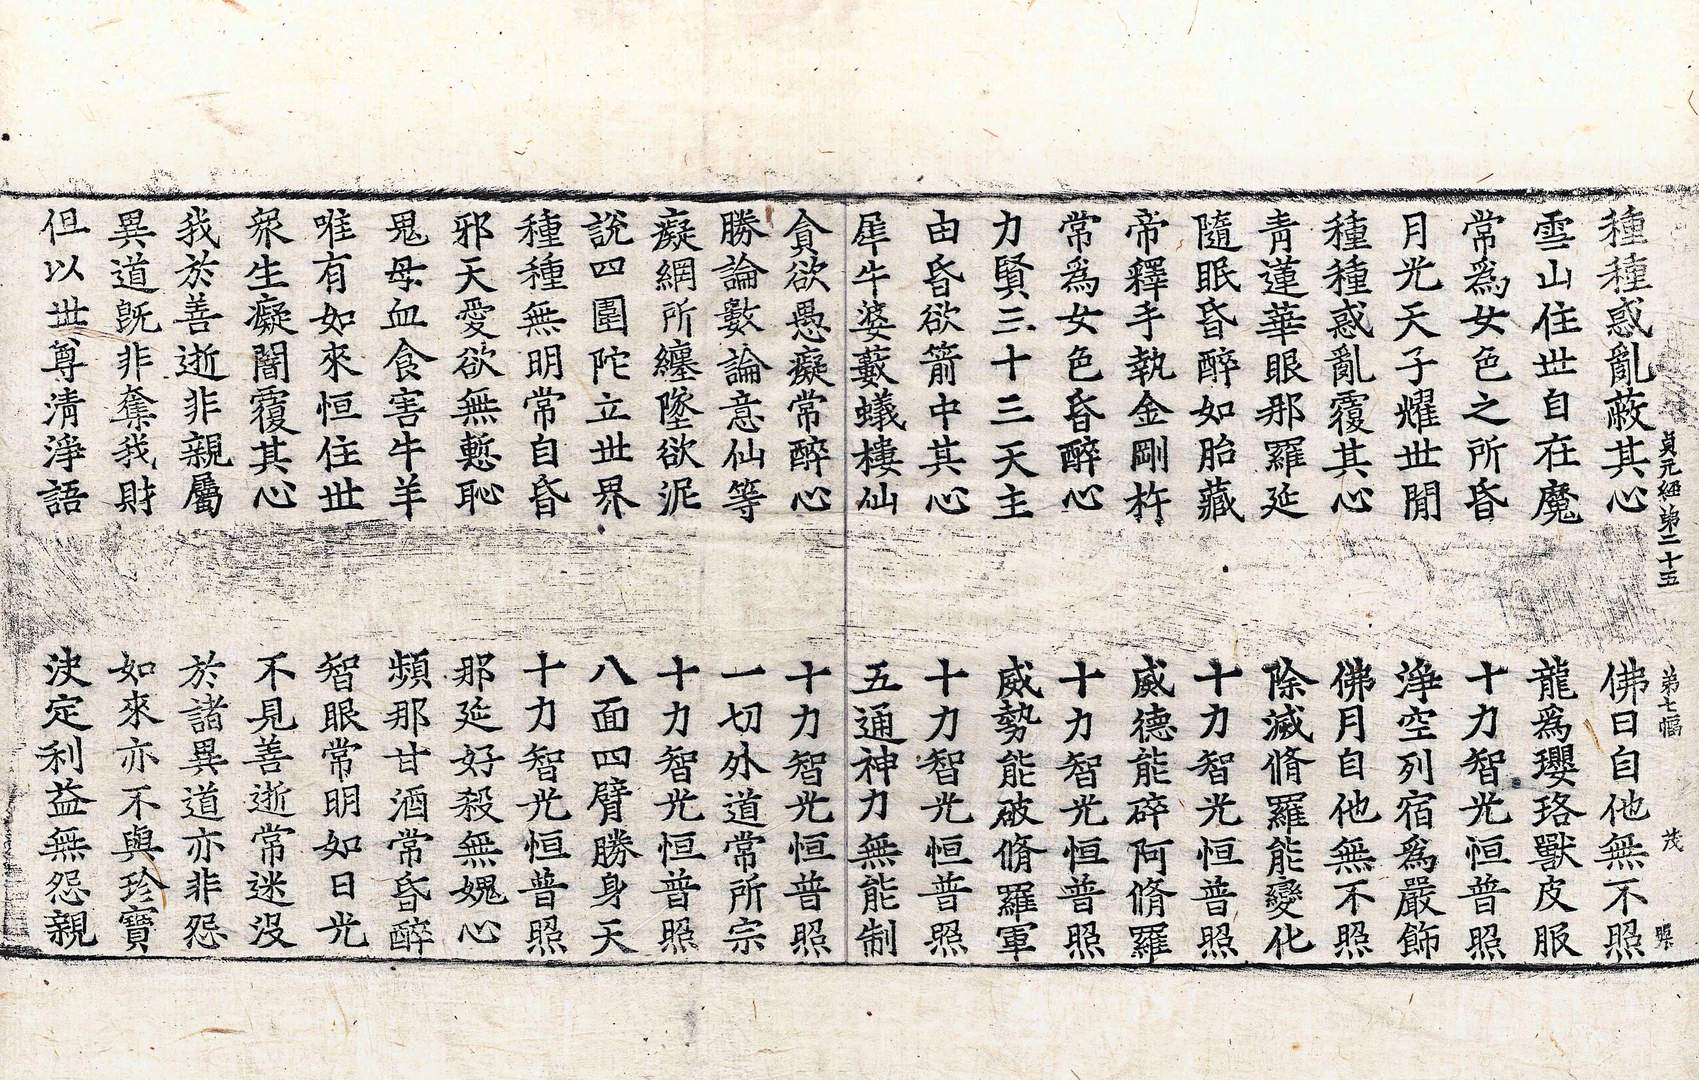 種種惑亂蔽其心　佛日自他無不照
貞元經第二十五　第七幅　茂　照
雪山住世自在魔　龍爲瓔珞獸皮服
常爲女色之所昏　十力智光恒普照
月光天子耀世閒　淨空列宿爲嚴飾
種種惑亂覆其心　佛月自他無不照
靑蓮華眼那羅延　除滅脩羅能變化
隨眠昏醉如胎藏　十力智光恒普照
帝釋手執金剛杵　威德能碎阿脩羅
常爲女色昏醉心　十力智光恒普照
力賢三十三天主　威勢能破脩羅軍
由昏欲箭中其心　十力智光恒普照
犀牛婆藪蟻樓仙　五通神力無能制
貪欲愚癡常醉心　十力智光恒普照
勝論數論意仙等　一切外道常所宗
癡網所纏墜欲泥　十力智光恒普照
說四圍陀立世界　八面四臂勝身天
種種無明常自昏　十力智光恒普照
邪天愛欲無慙恥　那延好殺無媿心
鬼母血食害牛羊　頻那甘酒常昏醉
唯有如來恒住世　智眼常明如日光
衆生癡闇覆其心　不見善逝常迷沒
我於善逝非親屬　於諸異道亦非怨
異道旣非奪我財　如來亦不與珍寶
但以世尊淸淨語　決定利益無怨親